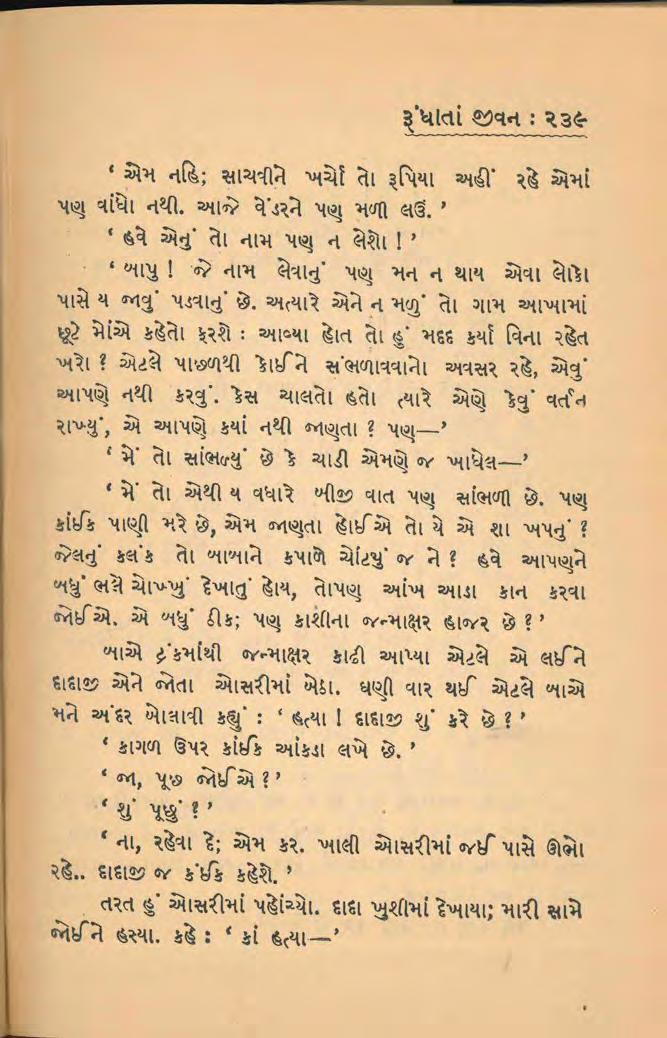 રૂંધાતાં જીવન : ૨૩૯
‘ એમ નહિ; સાચવીને ખર્ચો તો રૂપિયા અહીં રહે એમાં
પણ વાંધો નથી. આજે વેંડરને પણ મળી લઉં. ’
‘ હવે એનું તો નામ પણ ન લેશો ! ’
‘ બાપુ ! જે નામ લેવાનું પણ મન ન થાય એવા લોકો
પાસે ય જાવું પડવાનું છે. અત્યારે એને ન મળું તો ગામ આખામાં
છૂટે મોંએ કહેતો ફરશે : આવ્યા હોત તો હું મદદ કર્યા વિના રહેત
ખરો ? એટલે પાછળથી કોઈને સંભળાવવાનો અવસર રહે, એવું
આપણે નથી કરવું. કેસ ચાલતો હતો ત્યારે એણે કેવું વર્તન
રાખ્યું, એ આપણે કયાં નથી જાણતા ? પણ—’
‘ મેં તો સાંભળ્યું છે કે ચાડી એમણે જ ખાધેલ—’
‘ મેં તો એથી ય વધારે બીજી વાત પણ સાંભળી છે. પણ
કાંઈક પાણી મરે છે, એમ જાણતા હોઈએ તો યે એ શા ખપનું ?
જેલનું કલંક તો બાબાને કપાળે ચોંટ્યું જ ને ? હવે આપણને
બધું ભલે ચોખ્ખું દેખાતું હોય, તોપણ આંખ આડા કાન કરવા
જોઈએ. એ બધું ઠીક; પણ કાશીના જન્માક્ષર હાજર છે ? ’
બાએ ટ્રંકમાંથી જન્માક્ષર કાઢી આપ્યા એટલે એ લઈને
દાદાજી એને જોતા ઓસરીમાં બેઠા. ઘણી વાર થઈ એટલે બાએ
મને અંદર બોલાવી કહ્યું : ‘ હત્યા ! દાદાજી શું કરે છે ? ’
‘ કાગળ ઉપર કાંઈક આંકડા લખે છે. ’
‘ જા, પૂછ જોઈએ ? ’
‘ શું પૂછું ? ’
‘ ના, રહેવા દે; એમ કર. ખાલી ઓસરીમાં જઈ પાસે ઊભો
રહે.. દાદાજી જ કંઈક કહેશે. ’
તરત હું ઓસરીમાં પહોંચ્યો. દાદા ખુશીમાં દેખાયા; મારી સામે
જોઈને હસ્યા. કહે : ‘ કાં હત્યા—’